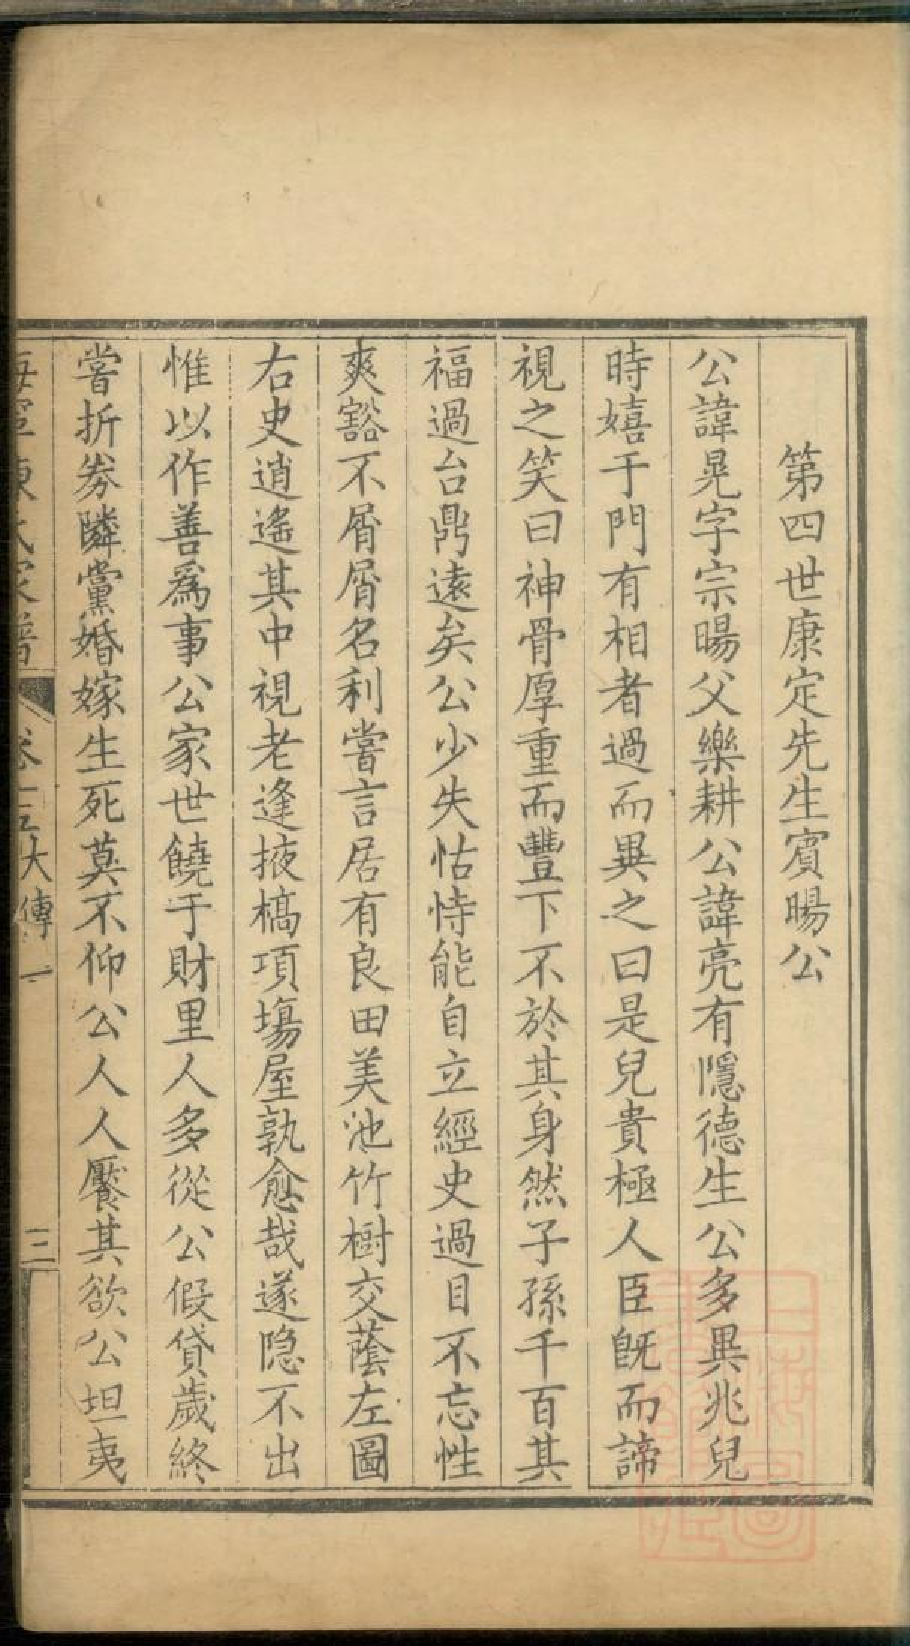 第四世康定先生賓暘公
公諱晃字宗暘父樂耕公諱亮有隱德生公多異兆兒
時嬉于門有相者過而異之曰是兒貴極人臣旣而諦
視之笑曰神骨厚重而豐下不於其身然子孫千百其
福過台鼎遠矣公少失怙恃能自立經史過目不忘性
爽豁不屑屑名利嘗言居有良田美池竹樹交蔭左圖
右史逍遙其中視老逢掖槁項塲屋孰愈哉遂隐不出
惟以作善爲事公家世饒于財里人多從公假貸歲終
嘗折券隣黨婚嫁生死莫不仰公人人饜其欲公坦夷
氏家譜
大傳一
三